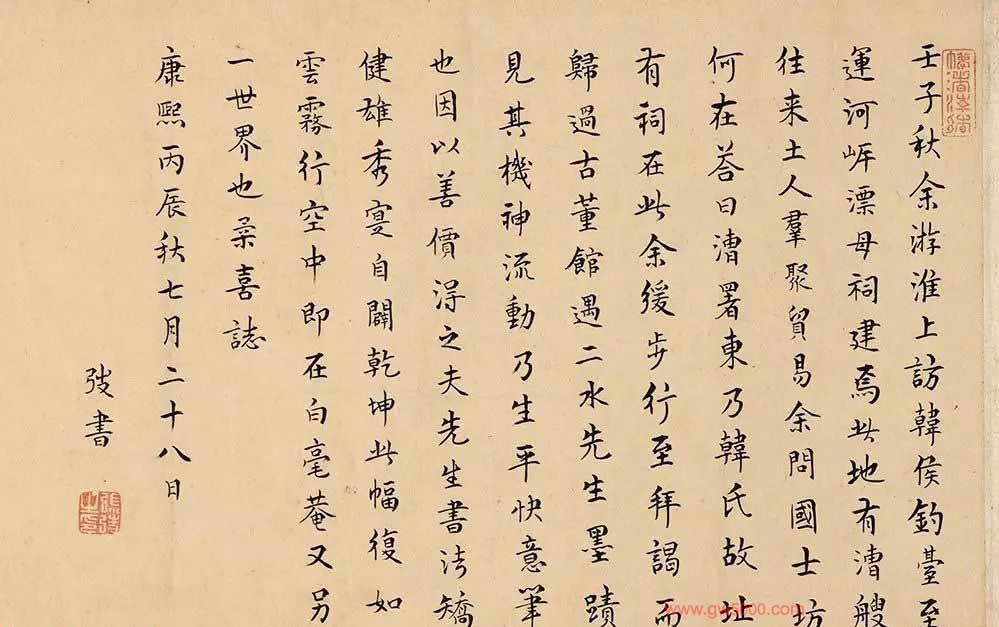 壬子秋余游淮上訪韓侯釣臺至
運河岸漂母祠建焉此地有漕艘
往来土人羣聚貿易余問國士坊
何在荅曰漕署東乃韓氏故址
有祠在此余緩步行至拜謁而
歸過古董館遇二水先生墨蹟
見其機神流動乃生平快意筆
也因以善價淂之夫先生書法矯
健雄秀寔自闢乾坤此幅復如
雲霧行空中即在白毫菴又另
一世界也喜誌
康熙丙辰秋七月二十八日
弢書
www.gw5000.com